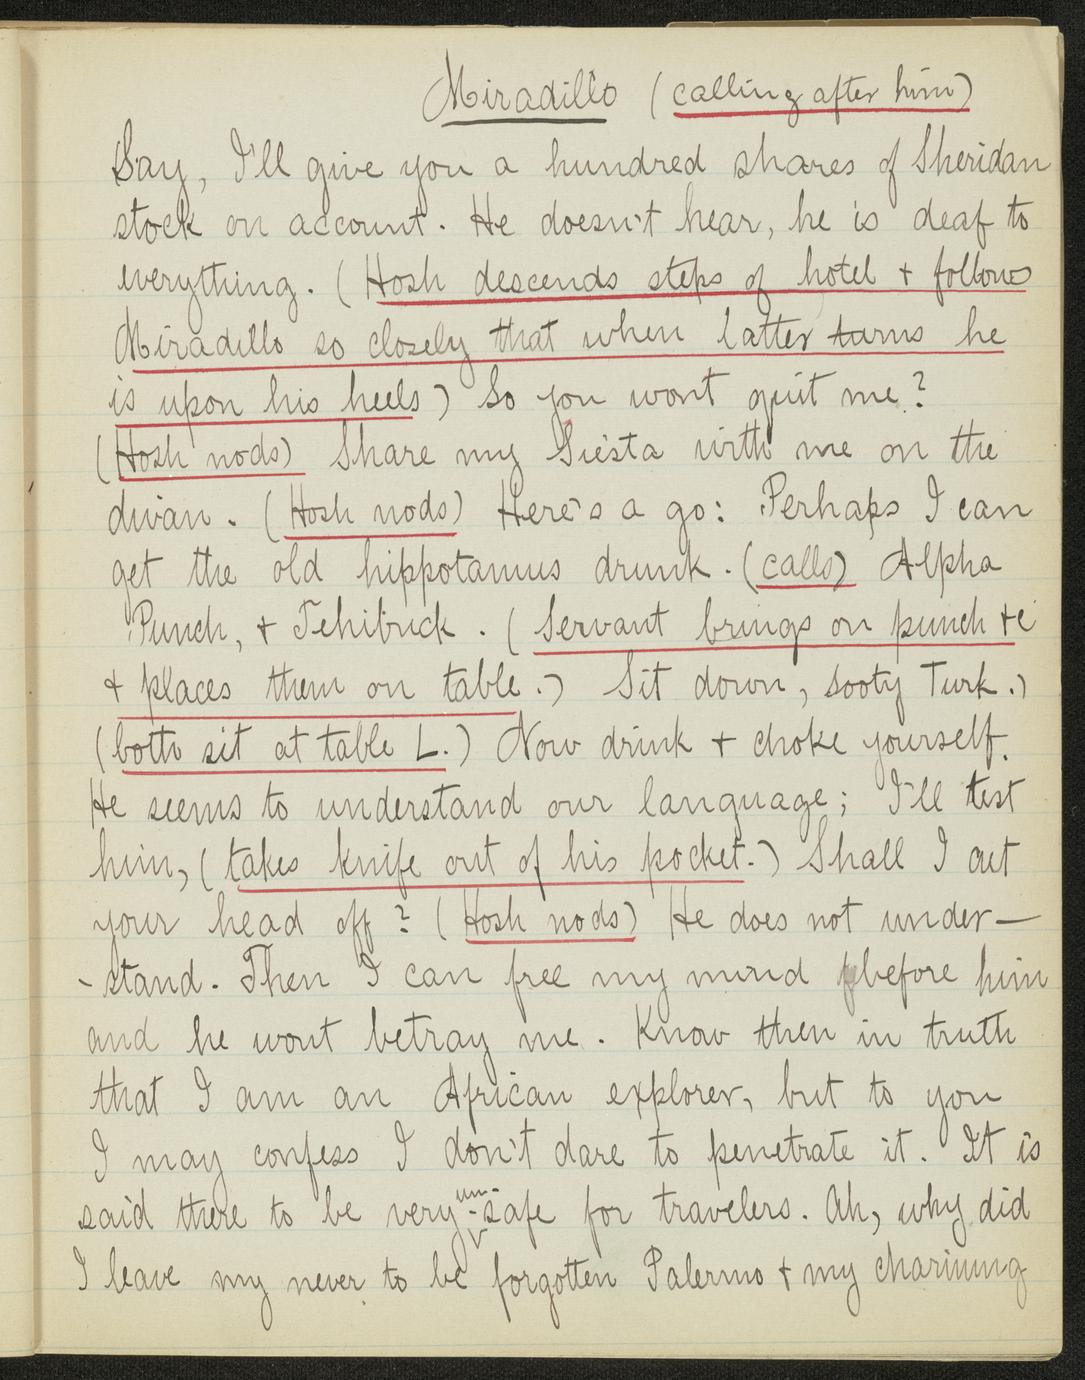 Miradillo (calling after him)
Say, I'll give you a hundred shares of Sheridan
stock on account. He doesn't hear, he is deaf to
everything. (Hosh descends steps of hotel + follows
Miradillo so closely that when latter turns he
is upon his heels) So you wont quit me?
(Hosh nods) Share my Siesta with me on the
divan. (Hosh nods) Here's a go: Perhaps I can
get the old hippotamus drunk. (calls) Alpha
Punch, + Tchibuck. (Servant brings on punch +c
+ places them on table.) Sit down, sooty Turk.)
(both sit at table L.) Now drink + choke yourself.
He seems to understand our language; I'll test
him, (takes knife out of his pocket.) Shall I cut
your head off? (Hosh nods) He does not under-
-stand. Then I can free my mind before him
and he wont betray me. Know then in truth
that I am an African explorer, but to you
I may confess I don't dare to penetrate it. It is
said there to be very un-safe for travelers. Ah, why did
I leave my never to be forgotten Palermo + my charming